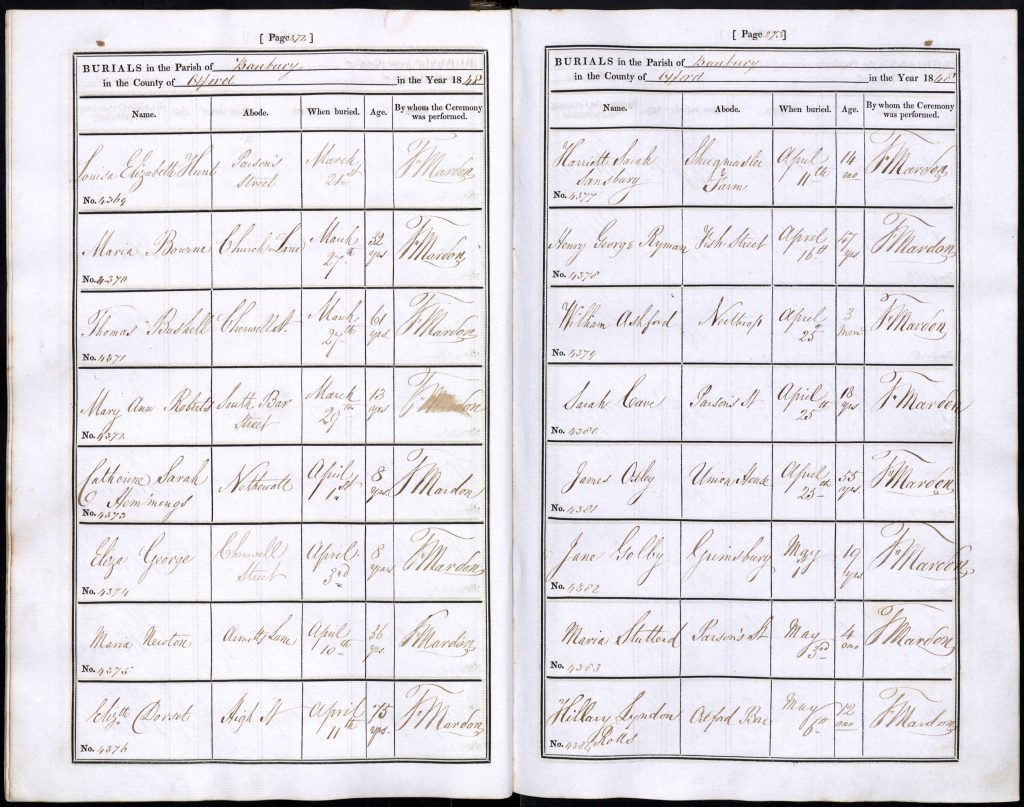 [ Page 372 ]
BURIALS in the Parish of Banbury
in the County of Oxford in the Year 1848
Name. Abode. When buried. Age. By whom the Ceremony was performed.
Louisa Elizabeth Hunt Parson's Street March 21st F Mardon
No. 4369
Maria Bourne Church Lane March 27th 32 yrs F Mardon
No. 4370
Thomas Bushell Cherwell St. March 27th 61 yrs. F Mardon
No. 4371
Mary Ann Roberts South Bar Street March 29th 13 yrs F Mardon
No. 4372
Catherine Sarah Hemmings April 1st 8 yrs F Mardon
No. 4373
Eliza George Cherwell Street April 3rd 8 years F Mardon
No. 4374
Maria Newton Lane April 10th 36 yrs. F Mardon
No. 4375
Elizth Dorset High St April 11th 75 yrs. F Mardon
No. 4376
[ Page 373 ]
BURIALS in the Parish of Banbury
in the County of Oxford in the Year 1848
Name. Abode. When buried. Age. By whom the Ceremony was performed.
Harriett Sarah Sansbury Farm April 11th 14 mo F Mardon
No. 4377
Henry George Ryman Fish Street April 16th 47 yrs F Mardon
No. 4378
William Ashford Neithrop April 25 3 Mon F Mardon
No. 4379
Sarah Cave Parson's St April 25 18 yrs F Mardon
No. 4380
James Union House April 25th 55 yrs. F Mardon
No. 4381
Jane Golby Grimsbury May 19 yrs F Mardon
No. 4382
Maria Stutterd Parson's St May 3rd 4 mo F Mardon
No. 4383
Hillary Lyndon Rolls Oxford Bar May 12 mo F Mardon
No. 4384